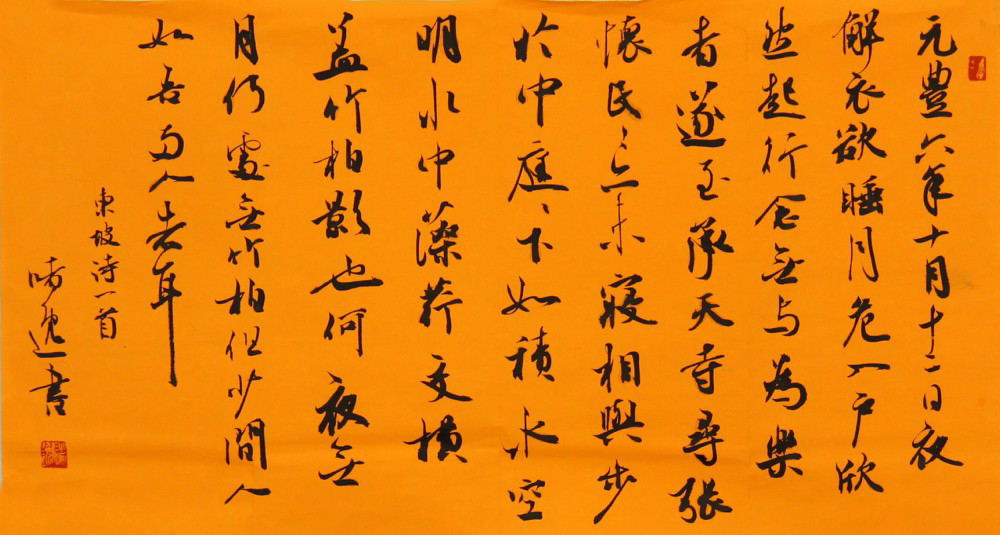 元豐六年十月十二日夜
解衣欲睡月色入户欣
然起行念無与為樂
者遂至承天寺尋張
懷民々亦未寢相與步
於中庭々下如積水空
明水中藻荇交橫
蓋竹柏影也何夜無
月何處無竹柏但少閒人
如吾兩人者耳
東坡诗一首
逸書